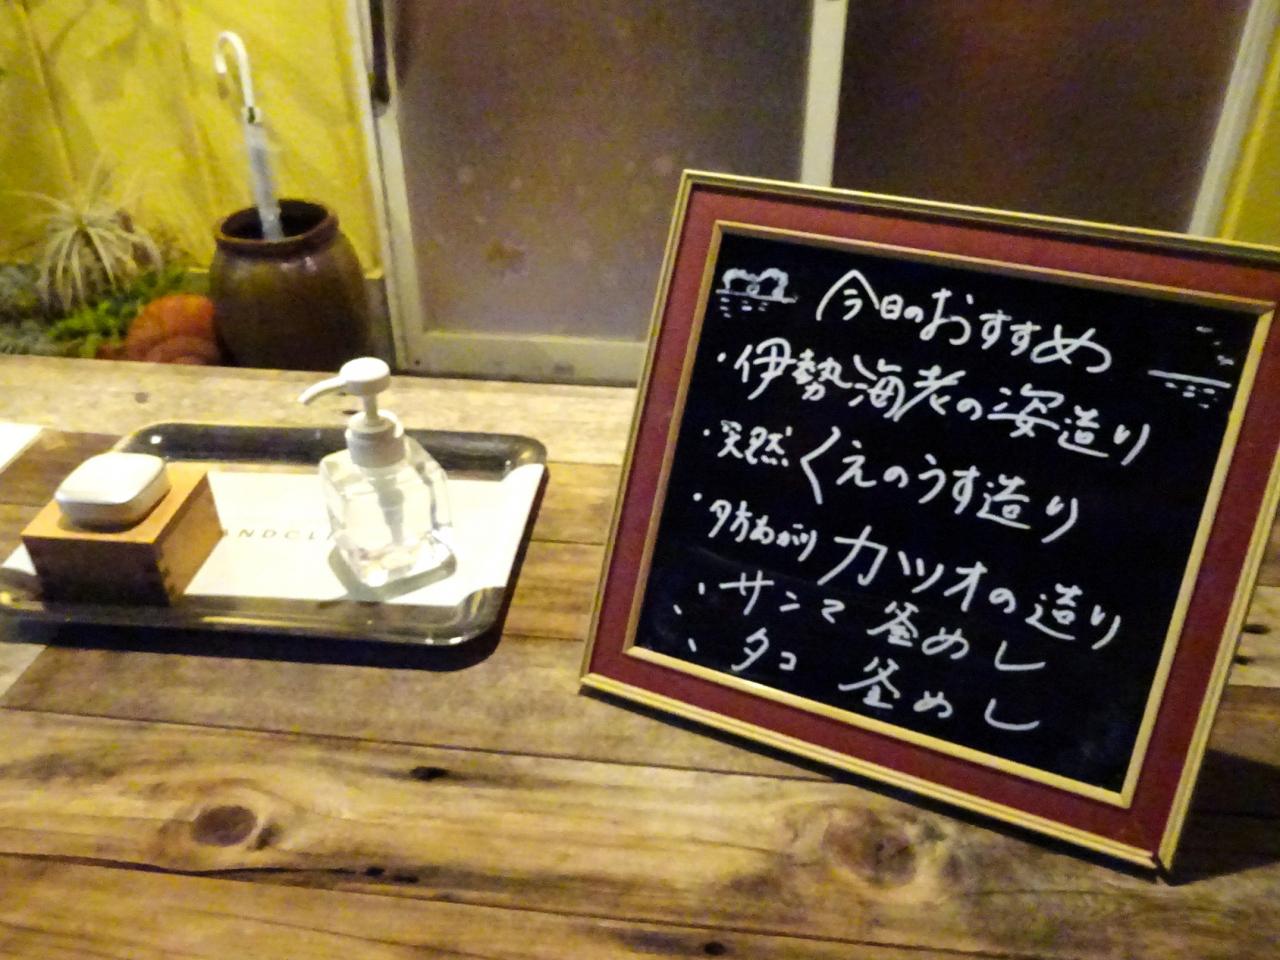 今日のおすすめ
・伊勢海老の姿造り
・天然くえのうす造り
・夕方あがりカツオの造り
サンマ 釜めし
タコ 釜めし